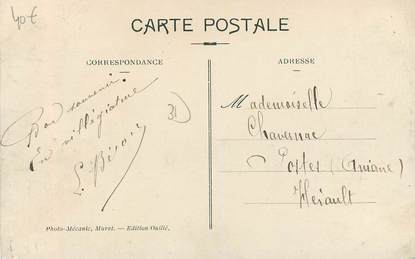 40€
CARTE POSTALE
CORRESPONDANCE
ADRESSE
Bon souvenir
En villégiature
31
Mademoiselle
Chavanac
Postes (Aniane)
Hérault
Photo-Mécanic, Muret. - Edition Ouillé.